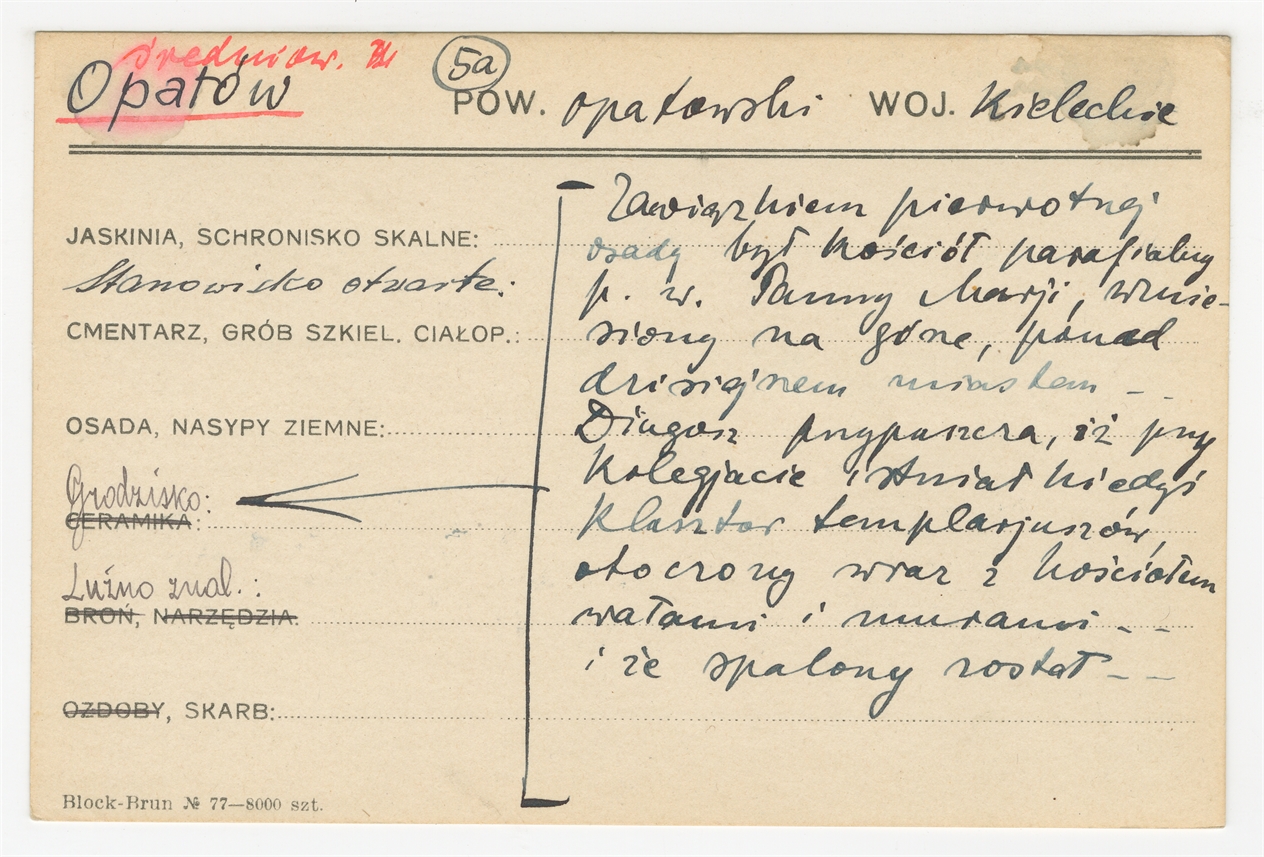 średniow.
Opatów
5a
POW. opatowski WOJ. Kieleckie
Zawiązkiem pierwotnej
JASKINIA, SCHRONISKO SKALNE:
osady był kościół parafialny
Stanowisko otwarte:
p. w. Panny Marji, wznie-
CMENTARZ, GRÓB SZKIEL. CIAŁOP.:
siony na górze, ponad
dzisiejszem miastem - -
OSADA, NASYPY ZIEMNE:
Długosz przypuszcza, iż przy
Grodzisko:
kolegjacie istniał kiedyś
CERAMIKA:
klasztor templarjuszów,
Luźno znal.:
otoczony wraz z kościołem
BROŃ, NARZĘDZIA
wałami i murami - -
i że spalony został - -
OZDOBY, SKARB:
Block-Brun № 77—8000 szt.